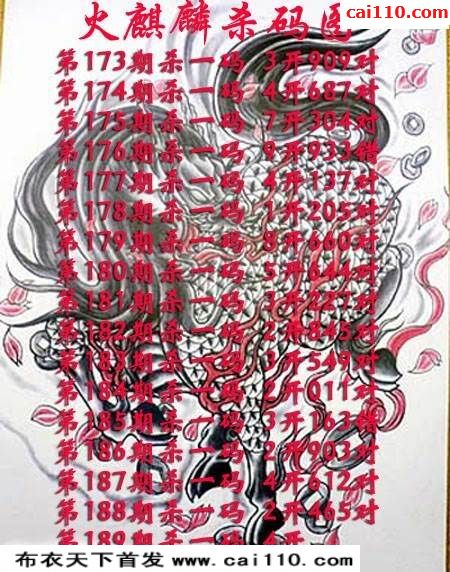 cai110.com
火麒麟杀码图
第173期杀一码 3开909对
第174期杀一码 4开687对
第175期杀一码 7开304对
第176期杀一码 9开933错
第177期杀一码 4开137对
第178期杀一码 1开205对
第179期杀一码 8开660对
第180期杀一码 5开644对
第181期杀一码 3开227对
第182期杀一码 2开845对
第183期杀一码 3开549对
第184期杀一码 2开011对
第185期杀一码 3开163错
第186期杀一码 2开903对
第187期杀一码 4开612对
第188期杀一码 2开465对
第189期杀一码 4开
布衣天下首发 www.cai110.com